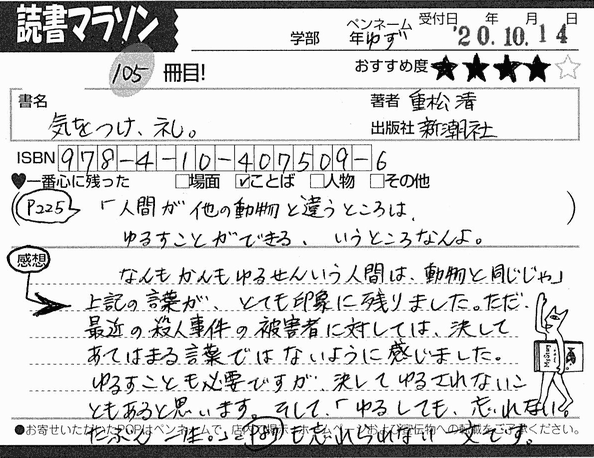 読書マラソン
学部 年 ペンネーム ゆず 受付日 年 月 日 '20.10.14
105 冊目!
おすすめ度 ★★★★☆
書名 気をつけ、礼。
著者 重松清
出版社 新潮社
ISBN 978-4-10-407509-6
♥一番心に残った □場面 ☑ことば □人物 □その他
(P225) 「人間が他の動物と違うところは、
ゆるすことができる、いうところなんよ。
感想
なんもかんもゆるせんいう人間は、動物と同じじゃ」
上記の言葉が、とても印象に残りました。ただ、
最近の殺人事件の被害者に対しては、決して
あてはまる言葉ではないように感じました。
ゆるすことも必要ですが、決してゆるされないこ
ともあると思います。そして、「ゆるしても、忘れない。
たぶん一生。」も忘れられない一文です。
●お寄せいただいたPOPはペンネームで、店内で掲示・ホームページおよび宣伝物への転載をご了承ください。